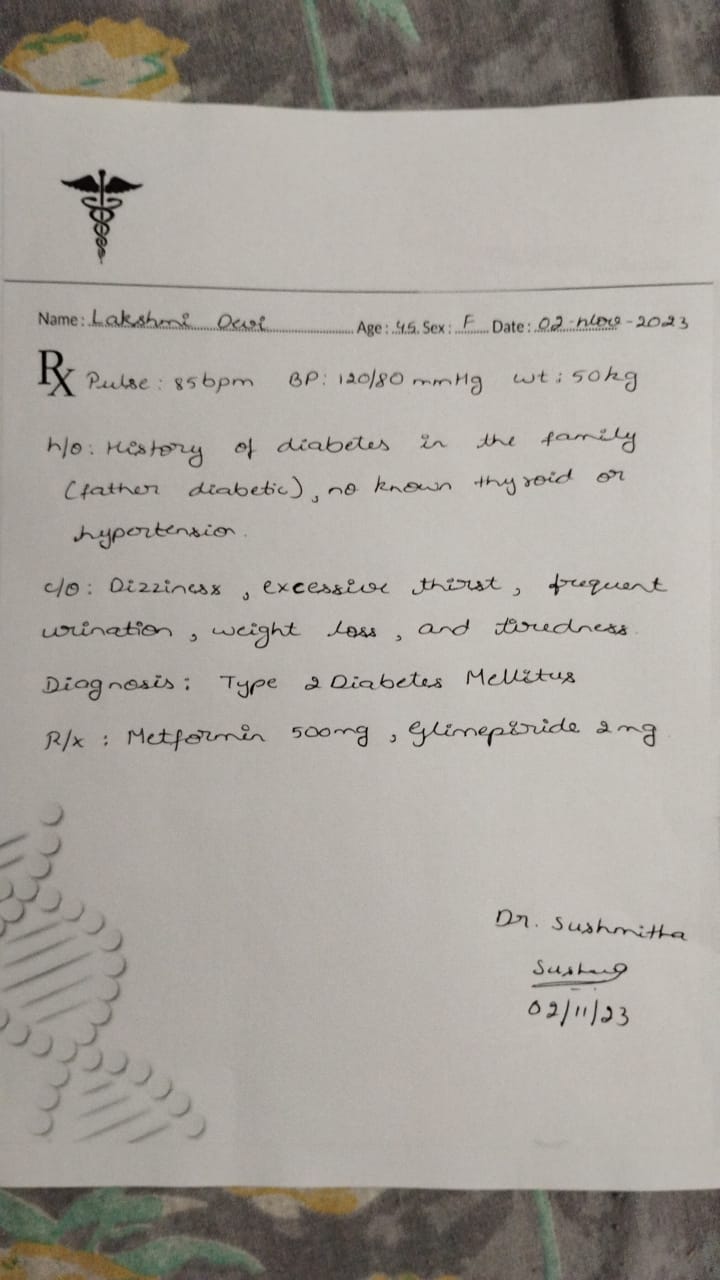 Name: Lakshmi Devi Age: 45. Sex: F Date: 02-Nov-2023
Rx Pulse: 85bpm BP: 120/80 mmHg wt: 50kg
h/o: History of diabetes in the family
(father diabetic), no known thyroid or
hypertension.
c/o: Dizziness, excessive thirst, frequent
urination, weight loss, and tiredness.
Diagnosis: Type 2 Diabetes Mellitus
R/x: Metformin 500mg, Glimepiride 2mg
Dr. Sushmitha
02/11/23